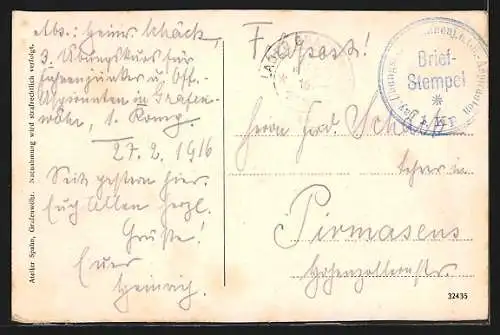 Abs.: Heinr. Schäck,
3. Übungskurs für
Fahnenjunker u. Off.
Aspiranten in Grafen-
wöhr, 1. Komp.
27.2.1916
Seit gestern hier.
Euch Allen herzl.
Grüße!
Euer
Heinrich.
Feldpost!
Brief-
Stempel
*
Herrn Ferd.
Lehrer in
Pirmasens
Hohenzollernstr.
32435
Atelier Spahn, Grafenwöhr. Nachahmung wird strafrechtlich verfolgt.